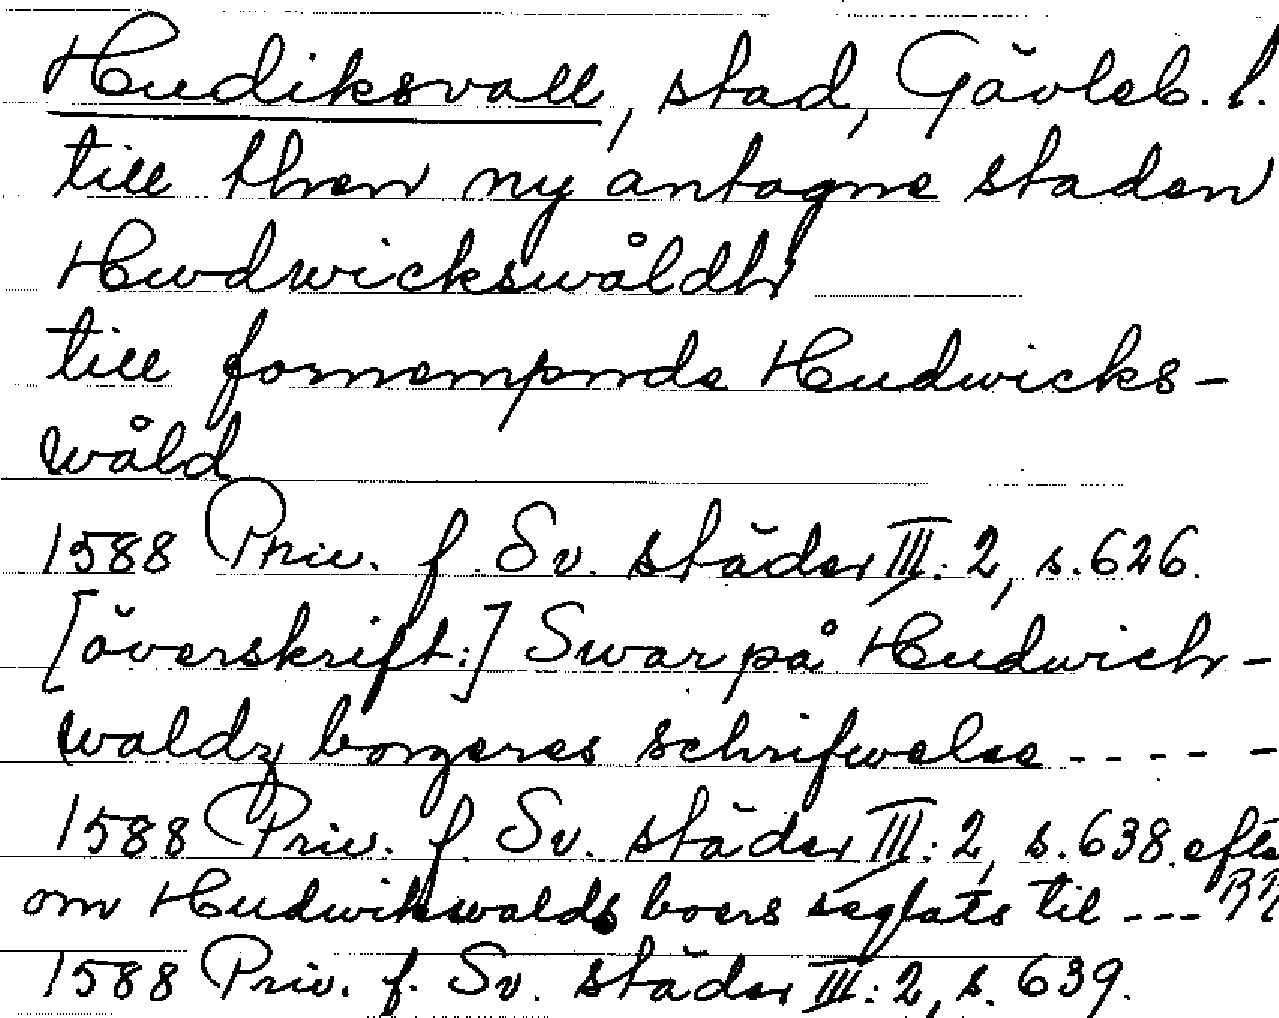 Hudiksvall, stad, Gävleb. l.
till then ny antagne staden
Hwdwickswåldh
till fornempnde Hudwicks-
wåld
1588 Priv. f. Sv. städer III: 2, s. 626.
[överskrift:] Swar på Hudwich-
waldz borgeres schrifwelse - - - - -
1588 Priv. f. Sv. städer III: 2, s. 638. efter
om Hudwikwalds boers seglats til - - - RR
1588 Priv. f. Sv. städer III: 2, s. 639.